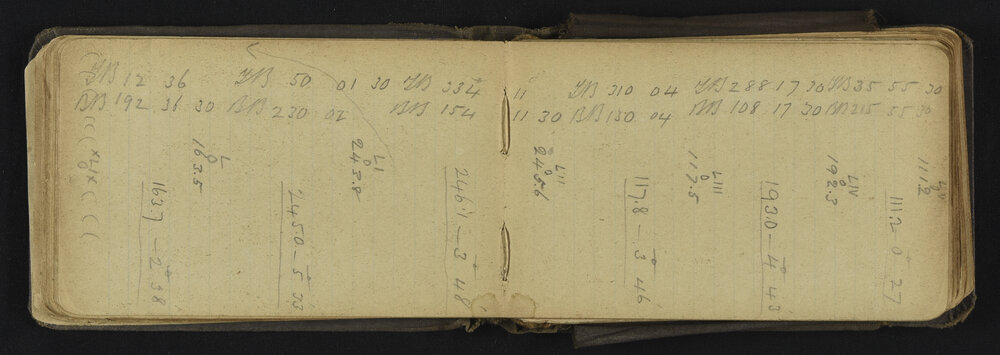 FB 12 36 FB 50 01 30 FB 334 11 FB 310 04 FB 288 17 30 FB 35 55 30
BB 192 36 30 BB 230 02 BB 154 11 30 BB 130 04 BB 108 17 30 BB 215 55 30
XLIX
0
L
0
163.5
163.7 – 2° 38
LI
0
243.8
245.0 – 5° 33
246.1 – 3° 48
LII
0
245.6
LIII
0
117.5
117.8 – 3° 46
LIV
0
192.3
193.0 – 4° 43
LV
0
111.2
111.2 0 27